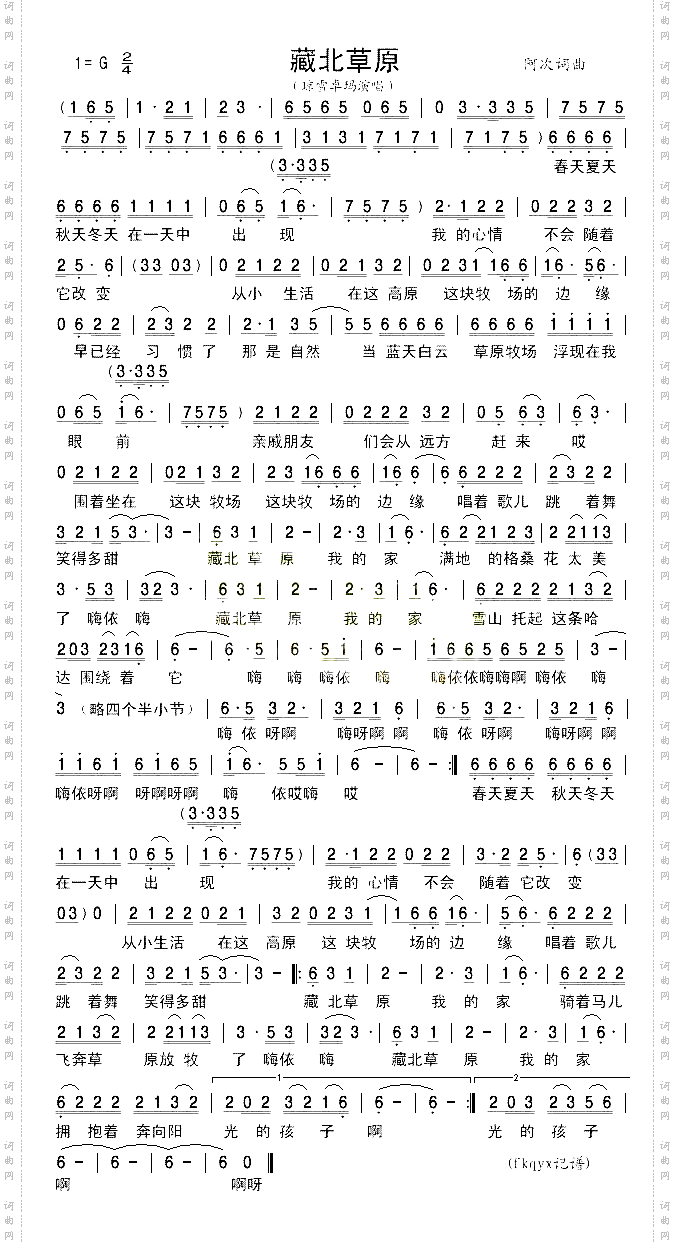 藏北草原
1= G 2/4
阿次词曲
(琼雪卓玛演唱)
( 1 6 5 | 1 · 2 1 | 2 3 · | 6 5 6 5 0 6 5 | 0 3 · 3 3 5 | 7 5 7 5
7 5 7 5 | 7 5 7 1 6 6 6 1 | 3 1 3 1 7 1 7 1 | 7 5 7 5 ) 6 6 6 6 |
(3·335
春天夏天
6 6 6 6 1 1 1 1 | 0 6 5 1 6 · | 7 5 7 5 ) 2 · 1 2 2 | 0 2 2 3 2 |
秋天冬天 在一天中 出 现 我 的心情 不会 随着
2 5 · 6 | (3 3 0 3 ) | 0 2 1 2 2 | 0 2 1 3 2 | 0 2 3 1 1 6 6 | 1 6 · 5 6 · |
它改 变 从小 生活 在这 高原 这块牧 场的 边 缘
0 6 2 2 | 2 3 2 2 | 2 · 1 3 5 | 5 5 6 6 6 6 | 6 6 6 6 1 1 1 1 |
早已经 习 惯 了 那 是 自然 当 蓝天白云 草原牧场 浮现在我
(3·335
0 6 5 1 6 · | 7 5 7 5 ) | 2 1 2 2 | 0 2 2 2 3 2 | 0 5 6 3 | 6 3 · |
眼 前 亲戚朋友 们会从 远方 赶 来 哎
0 2 1 2 2 | 0 2 1 3 2 | 2 3 1 6 6 6 | 1 6 6 6 | 6 2 2 2 | 2 3 2 2 |
围着坐在 这块 牧场 这块牧 场的 边 缘 唱着 歌儿 跳 着舞
3 2 1 5 3 · | 3 - | 6 3 1 | 2 - | 2 · 3 | 1 6 · | 6 2 2 3 2 | 2 2 1 1 3 |
笑得多甜 藏北 草 原 我 的 家 满地 的格桑 花 太 美
3 · 5 3 | 3 2 3 · | 6 3 1 | 2 - | 2 · 3 | 1 6 · | 6 2 2 2 2 1 3 2 |
了 嗨依 嗨 藏北草 原 我 的 家 雪山 托起 这条哈
2 0 3 2 3 1 6 | 6 - | 6 · 5 | 6 · 5 1 | 6 - | 1 6 6 5 6 5 2 5 |
达 围绕 着 它 嗨 嗨 嗨依 嗨 嗨依依嗨嗨啊 嗨依 嗨
3 (略四个半小节) | 6 · 5 3 2 | 3 2 1 6 | 6 · 5 3 2 | 3 2 1 6 |
嗨 依 呀啊 嗨呀啊 啊 嗨 依 呀啊 嗨呀啊 啊
1 1 6 1 6 1 6 1 | 1 6 · 5 5 1 | 6 - | 6 - :‖ 6 6 6 6 6 6 6 6 |
嗨依呀啊 呀啊呀啊 嗨 依哎嗨 哎 春天夏天 秋天冬天
(3·335
1 1 1 1 0 6 5 | 1 6 · 7 5 7 5 ) | 2 · 1 2 2 0 2 2 | 3 · 2 2 5 · | 6 (3 3
在一天中 出 现 我的 心情 不会 随着 它改 变
0 3 ) 0 | 2 1 2 2 0 2 1 | 3 2 0 2 3 1 | 1 6 6 1 6 · | 5 6 · 6 2 2 2 |
从小生活 在这 高原 这 块牧 场的 边 缘 唱着 歌儿
2 3 2 2 | 3 2 1 5 3 · | 3 - ‖: 6 3 1 | 2 - | 2 · 3 | 1 6 · | 6 2 2 2
跳 着舞 笑得多甜 藏 北草 原 我 的 家 骑着马儿
2 1 3 2 | 2 2 1 1 3 | 3 · 5 3 | 3 2 3 · | 6 3 1 | 2 - | 2 · 3 | 1 6 · |
飞奔草 原放 牧 了 嗨依 嗨 藏北草 原 我 的 家
1 2
6 2 2 2 2 1 3 2 | 2 0 2 3 2 1 6 | 6 - | 6 - :‖ 2 0 3 2 3 5 6 |
拥 抱着 奔向阳 光 的 孩 子 啊 光 的 孩 子
6 - | 6 - | 6 - | 6 - | 6 0 ‖
(fkqyx记谱)
啊 啊呀
词曲网